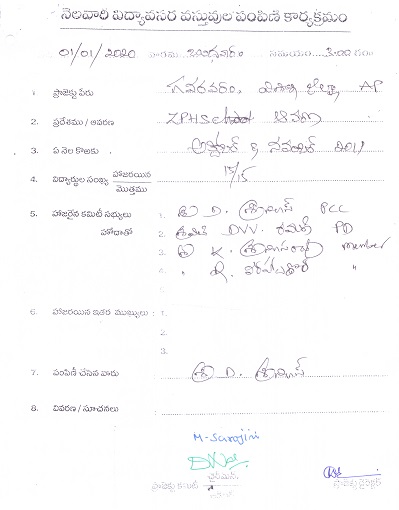 నెలవారి విద్యావసర వస్తువుల పంపిణి కార్యక్రమం
01/01/2020 వారము బుధవారం సమయం 3:00 గం
1. ప్రాజెక్టు పేరు గవరవరం, విశాఖ జిల్లా AP
2. ప్రదేశము / ఆవరణ ZPHSchool ఆవరణ
3. ఏ నెల కొఱకు అక్టోబర్ & నవంబర్ 2019
4. విద్యార్థుల సంఖ్య హాజరయిన 15/15
మొత్తము
5. హాజరైన కమిటీ సభ్యులు 1. శ్రీ D. శ్రీనివాస్ PCC
హోదాతో 2. శ్రీమతి DVV. రమణి PD
3. శ్రీ K. శ్రీనివాసరావు member
4. " R. "
6. హాజరయిన ఇతర ముఖ్యులు : 1.
2.
3.
7. పంపిణీ చేసిన వారు శ్రీ D. శ్రీనివాస్
8. వివరణ / సూచనలు
M-Sarojini
ఛైర్మన్
ప్రాజెక్టు కమిటీ
ప్రాజెక్టు డైరెక్టర్